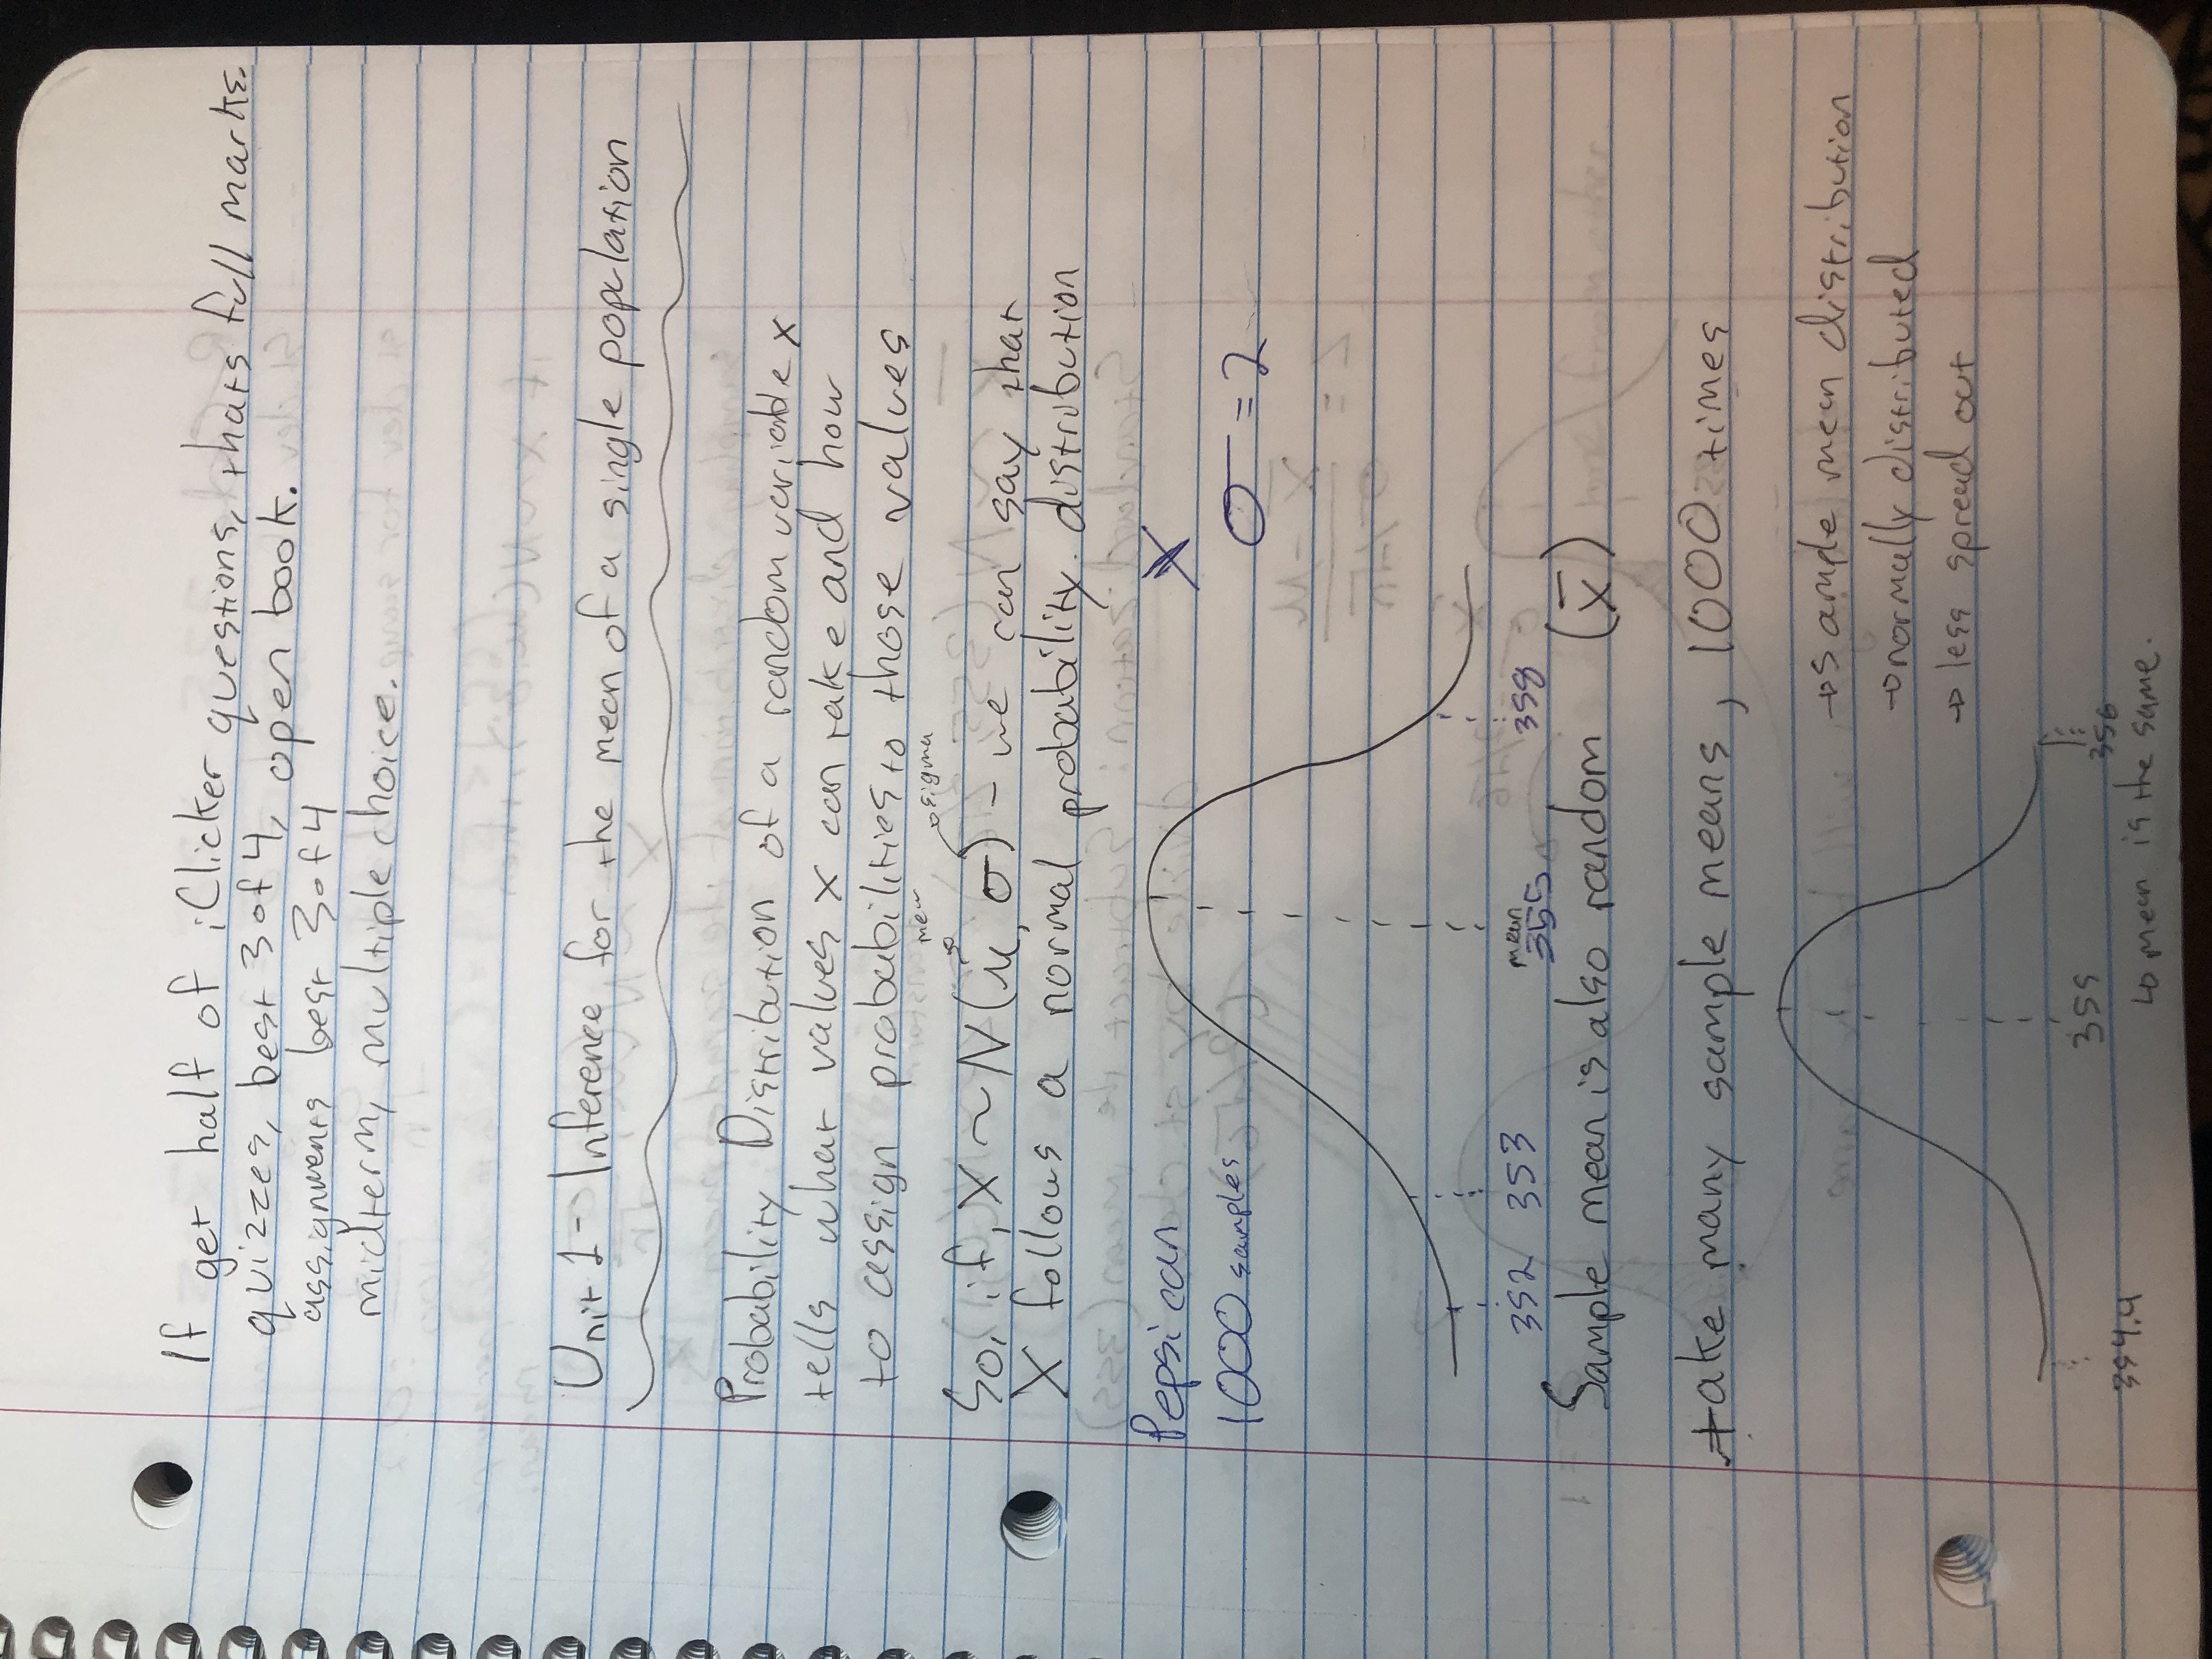 If get half of iClicker questions, thats full marks.
quizzes, best 3 of 4, open book.
assignments best 3 of 4
midterm, multiple choice.
Unit 1 - Inference for the mean of a single population
Probability Distribution of a random variable x
tells what values x can take and how
to assign probabilities to those values
mew sigma
So, if, X ~ N(μ, σ) - we can say that
X follows a normal probability distribution
Pepsi can X
1000 samples σ = 2
352 353 mean 355 358
Sample mean is also random (x̄)
take many sample means, 1000 times
→ sample mean distribution
→ normally distributed
→ less spread out
354.4 355 356
↳ mean is the same.